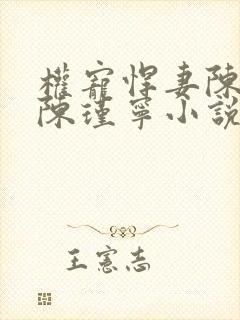 權寵悍妻陳
陳瑾寧小說
王憲志